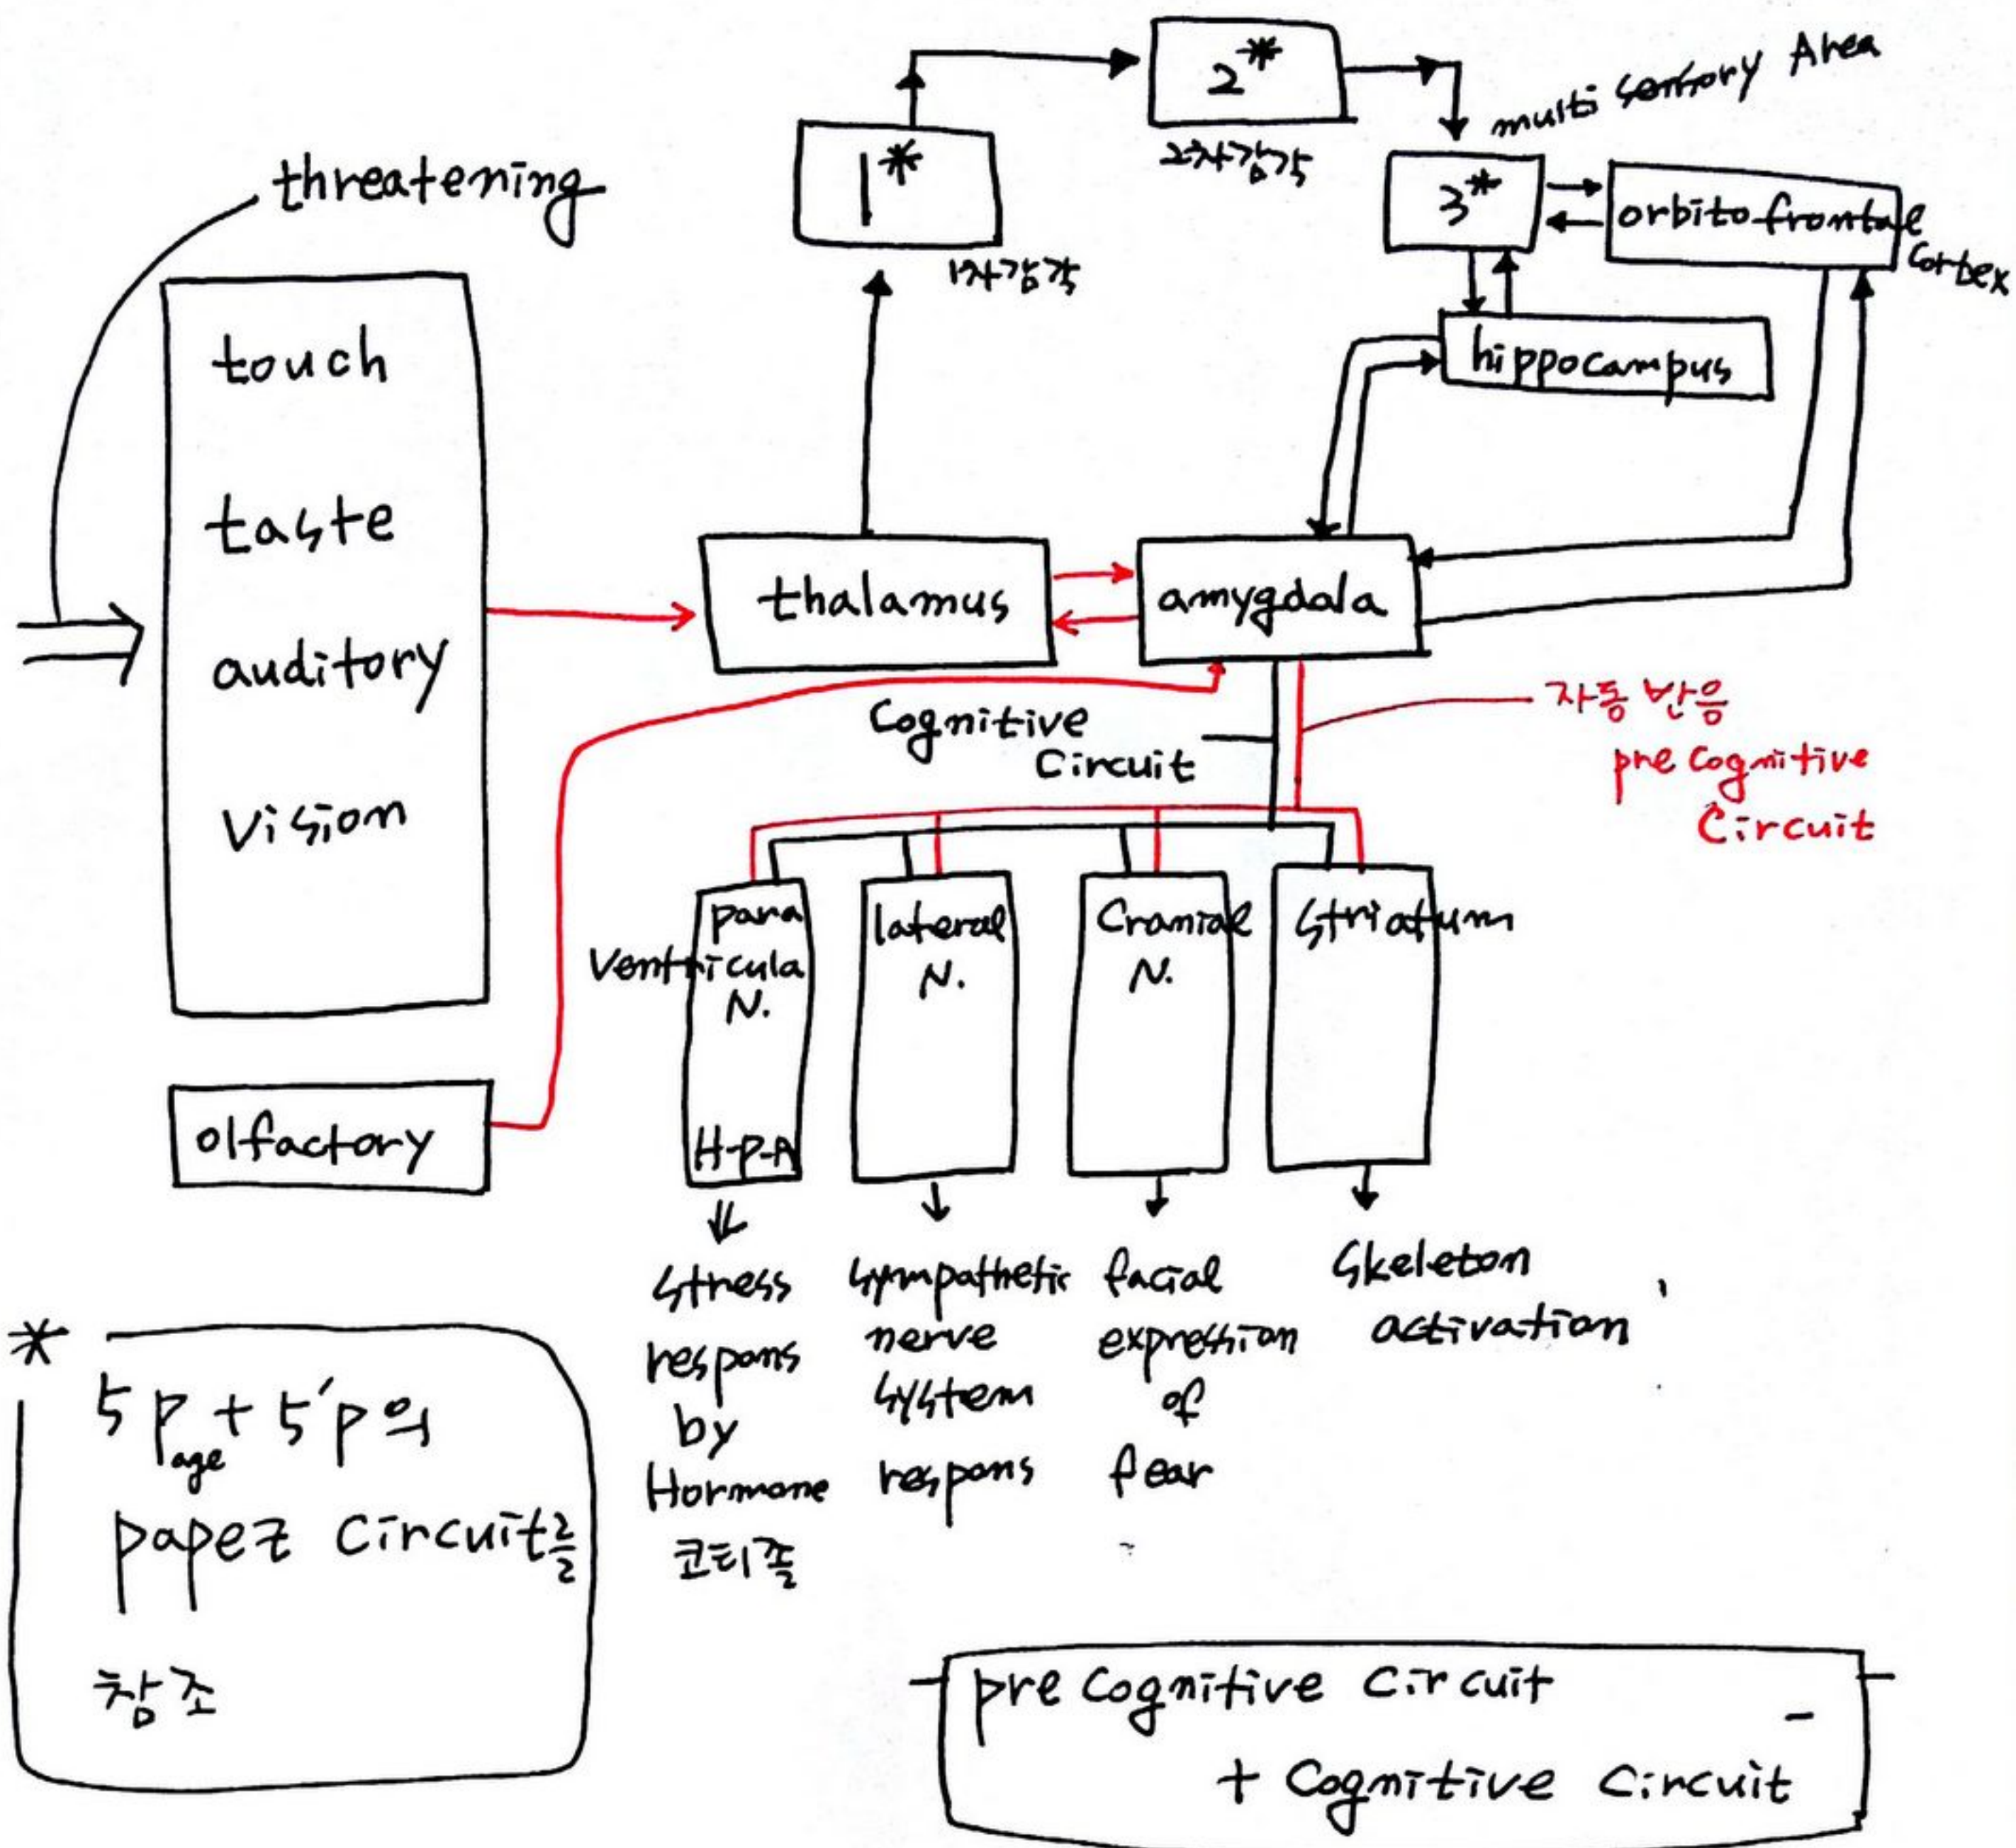 threatening
touch
taste
auditory
vision
olfactory
1*
1차감각
2*
2차감각
multi sensory Area
3*
orbitofrontal
Cortex
hippocampus
thalamus
amygdala
Cognitive
Circuit
자동 반응
pre Cognitive
Circuit
para
Ventricula
N.
H-P-A
lateral
N.
Cranial
N.
Striatum
Stress
respons
by
Hormone
코티졸
Sympathetic
nerve
System
respons
facial
expression
of
fear
Skeleton
activation
*
5 Page + 5'p의
papez Circuit를
참조
pre Cognitive Circuit
+ Cognitive Circuit